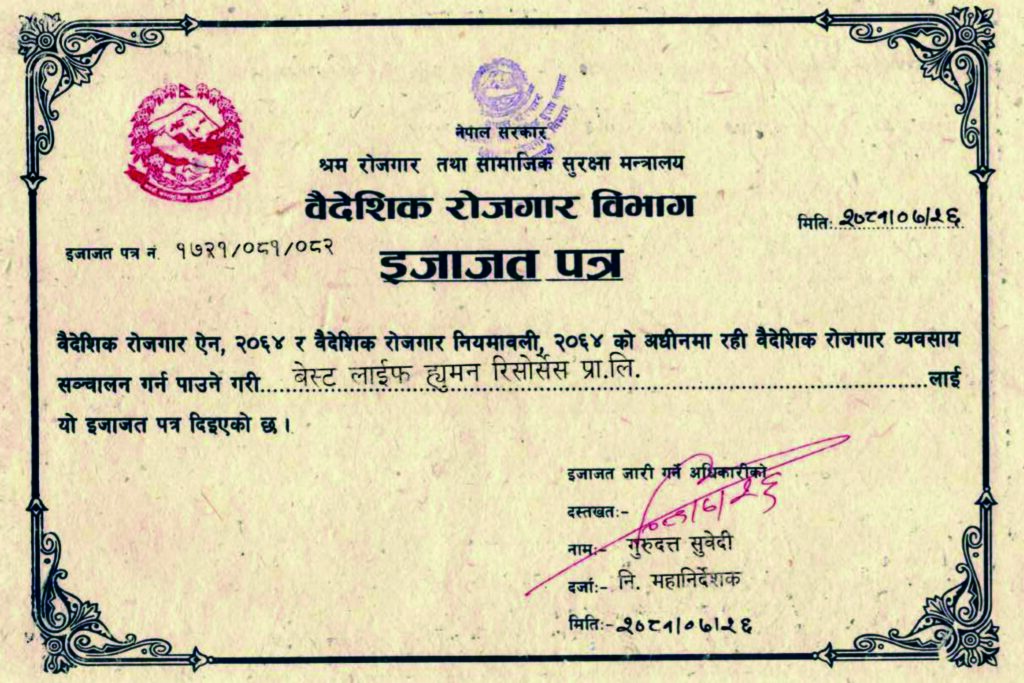 नेपाल सरकार
श्रम रोजगार तथा सामाजिक सुरक्षा मन्त्रालय
वैदेशिक रोजगार विभाग
मिति: २०८१/०७/२६
इजाजत पत्र नं. १७२१/०८१/०८२
इजाजत पत्र
वैदेशिक रोजगार ऐन, २०६४ र वैदेशिक रोजगार नियमावली, २०६४ को अधीनमा रही वैदेशिक रोजगार व्यवसाय
सञ्चालन गर्न पाउने गरी बेस्ट लाईफ ह्युमन रिसोर्सेस प्रा.लि. लाई
यो इजाजत पत्र दिइएको छ।
इजाजत जारी गर्ने अधिकारीको
दस्तखत:-
नाम:- गुरुदत्त सुवेदी
दर्जा:- नि. महानिर्देशक
मिति:- २०८१/०७/२६